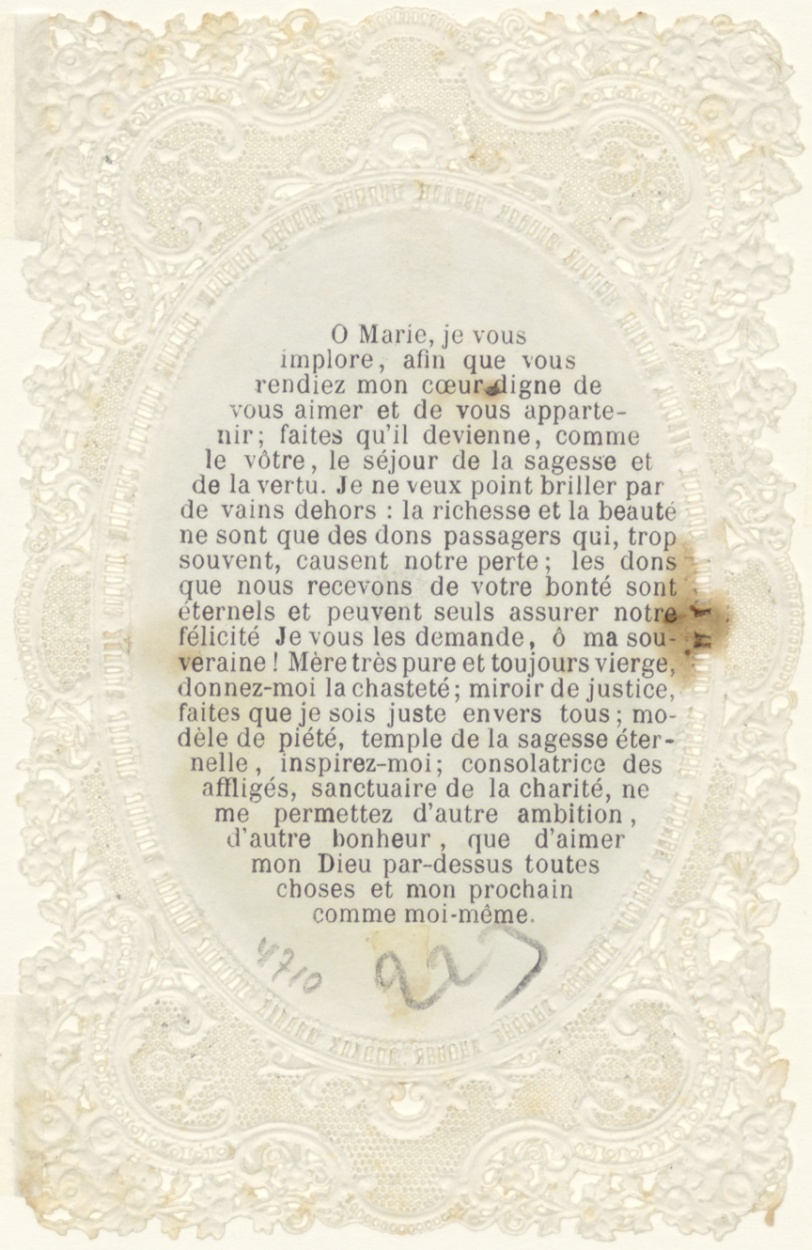 O Marie, je vous
implore, afin que vous
rendiez mon cœur digne de
vous aimer et de vous apparte-
nir; faites qu'il devienne, comme
le vôtre, le séjour de la sagesse et
de la vertu. Je ne veux point briller par
de vains dehors : la richesse et la beauté
ne sont que des dons passagers qui, trop
souvent, causent notre perte; les dons
que nous recevons de votre bonté sont
éternels et peuvent seuls assurer notre
félicité Je vous les demande, ô ma sou-
veraine ! Mère très pure et toujours vierge,
donnez-moi la chasteté; miroir de justice,
faites que je sois juste envers tous; mo-
dèle de piété, temple de la sagesse éter-
nelle, inspirez-moi; consolatrice des
affligés, sanctuaire de la charité, ne
me permettez d'autre ambition,
d'autre bonheur, que d'aimer
mon Dieu par-dessus toutes
choses et mon prochain
comme moi-même.
4710 227